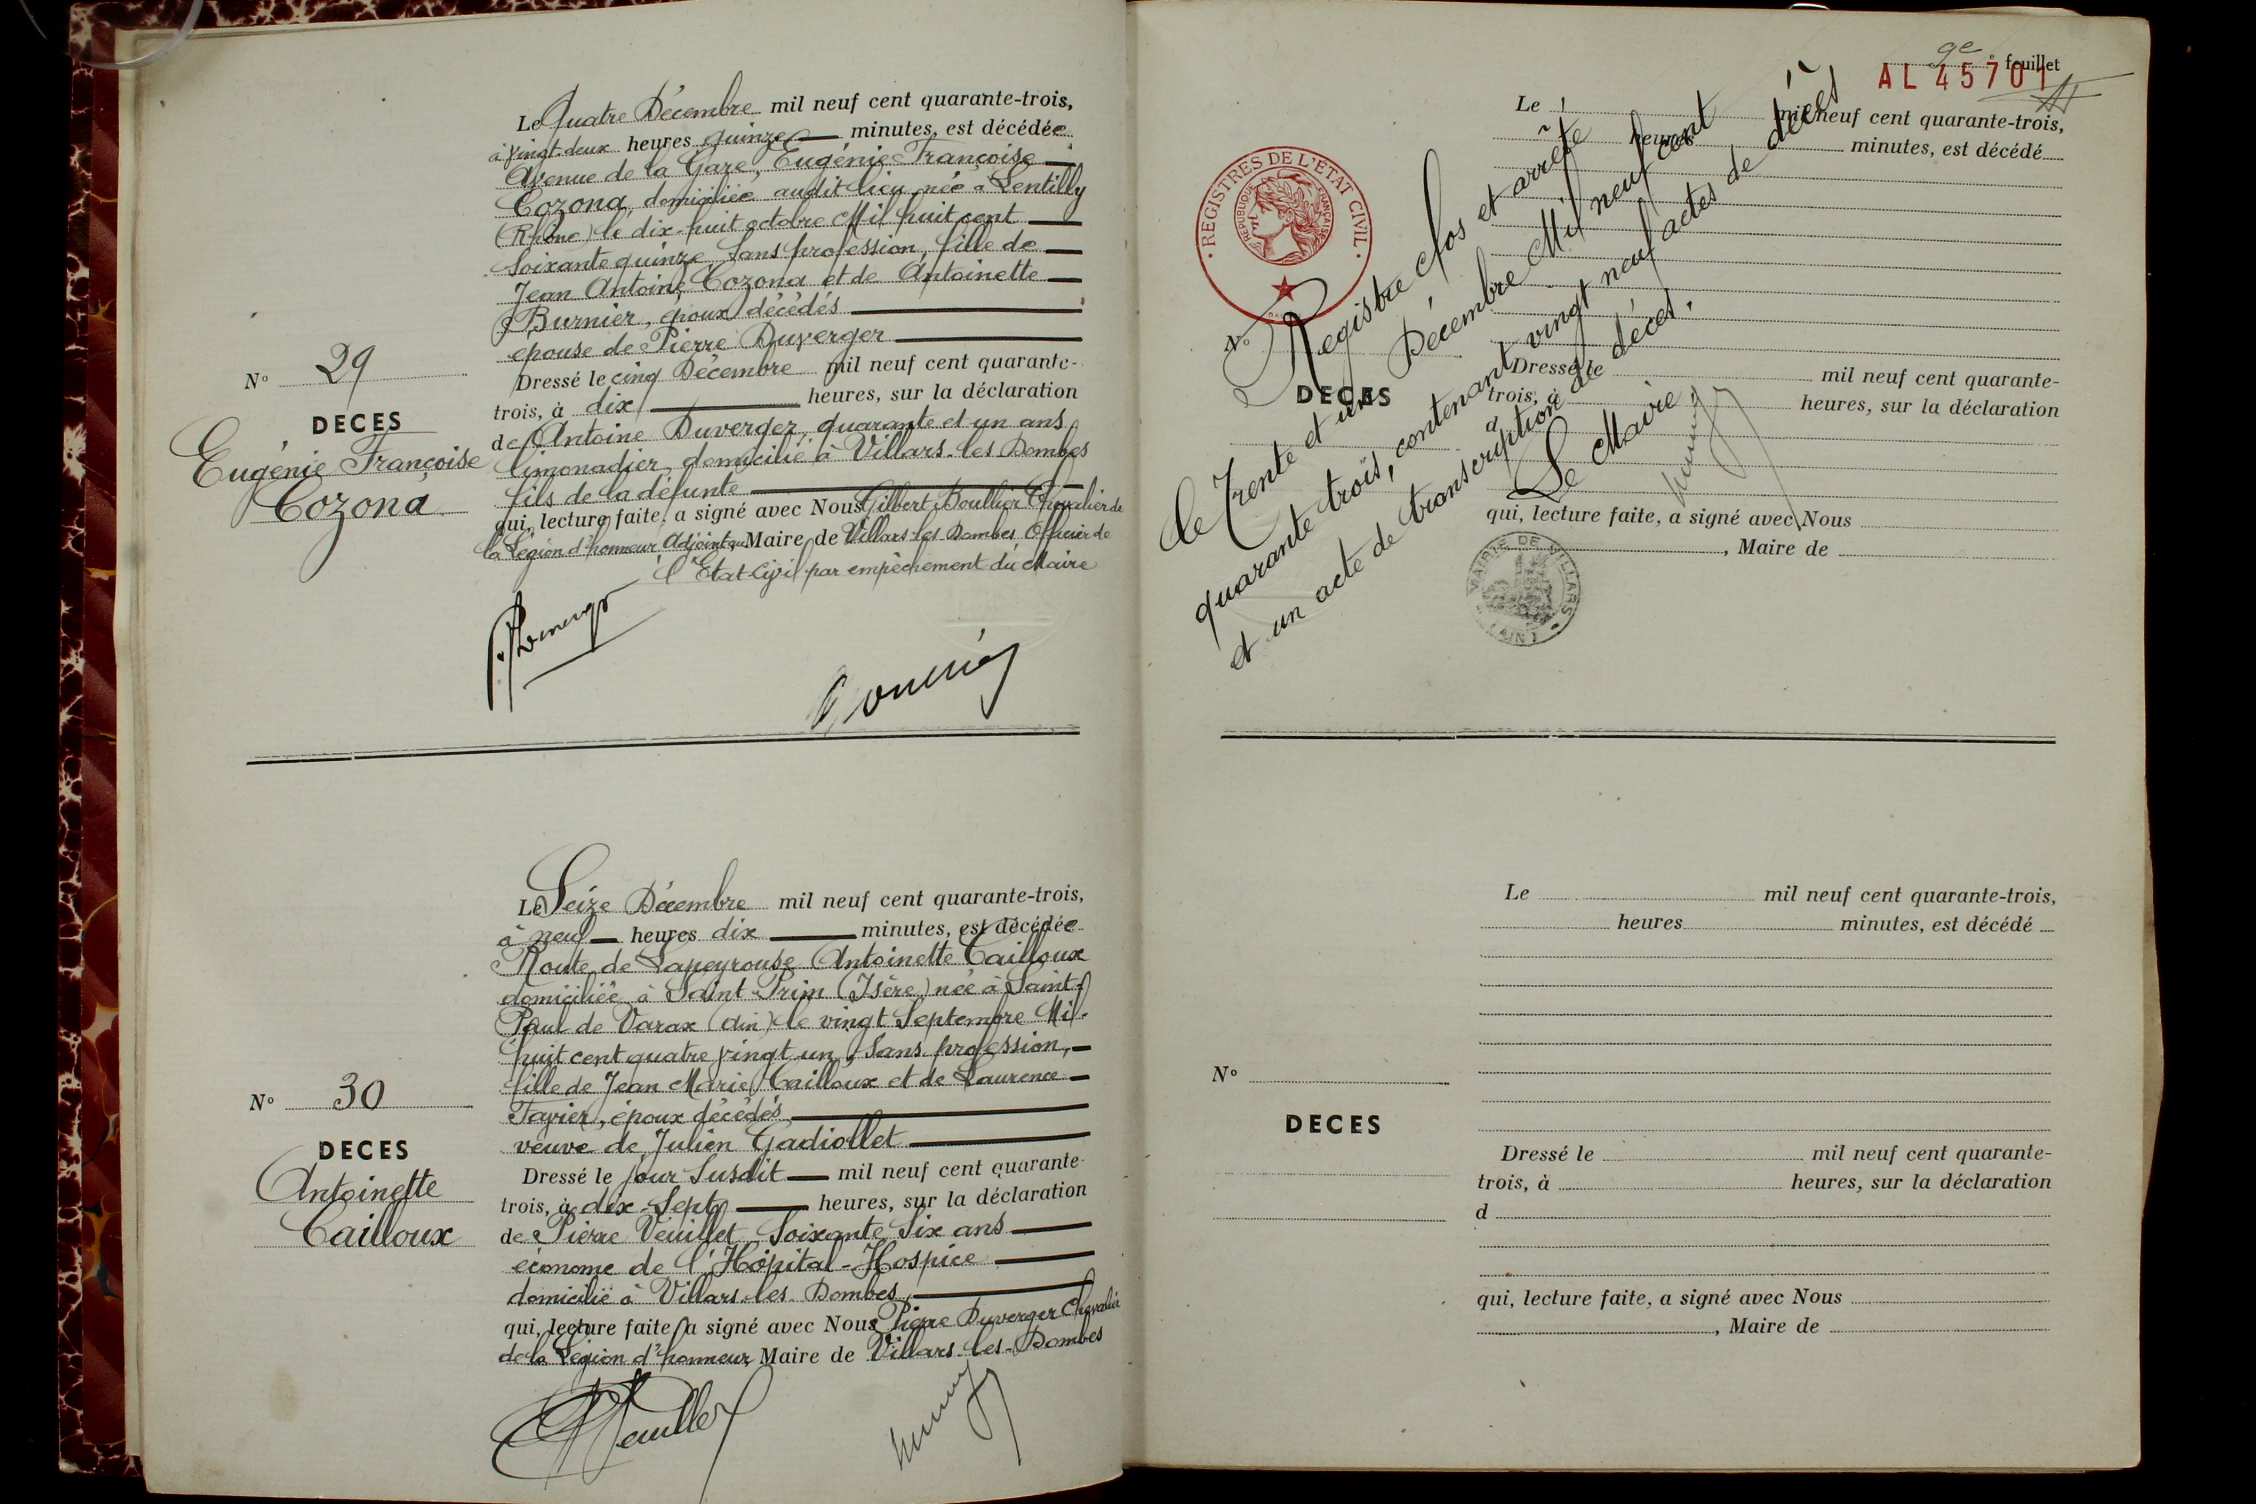 Le Quatre Décembre mil neuf cent quarante-trois,
à vingt-deux heures quinze minutes, est décédée
Avenue de la Gare, Eugénie Françoise
Cozona, domiciliée audit lieu née à Lentilly
(Rhône) le dix-huit octobre Mil huit cent
Soixante quinze Sans profession, fille de
Jean Antoine Cozona et de Antoinette
Burnier, époux décédés
épouse de Pierre Duverger
Dressé le cinq Décembre mil neuf cent quarante-
trois, à dix heures, sur la déclaration
de Antoine Duverger, quarante et un ans
limonadier, domicilié à Villars-les Dombes
fils de la défunte
qui, lecture faite, a signé avec Nous Gilbert Boullier Chevalier de
la Légion d'honneur Adjoint au Maire de Villars-les Dombes Officier de
l'Etat-Civil par empêchement du Maire
N° 29
DECES
Eugénie Françoise
Cozona
Le Seize Décembre mil neuf cent quarante-trois,
à neuf heures dix minutes, est décédée
Route de Lapeyrouse Antoinette Cailloux
domiciliée à Saint-Prim (Isère) née à Saint-
Paul de Varax (Ain) le vingt Septembre Mil-
huit cent quatre vingt un, Sans profession,
fille de Jean Marie Cailloux et de Laurence
Tavier, époux décédés
veuve de Julien Gadiollet
Dressé le jour Susdit mil neuf cent quarante-
trois, à dix-Sept heures, sur la déclaration
de Pierre Veuillet Soixante Six ans
économe de l'Hôpital-Hospice
domicilié à Villars-les Dombes,
qui, lecture faite, a signé avec Nous Pierre Duverger Chevalier
de la Légion d'honneur, Maire de Villars-les-Dombes
N° 30
DECES
Antoinette
Cailloux
9e feuillet
AL 45701
Le mil neuf cent quarante-trois,
heures minutes, est décédé
REGISTRES DE L'ETAT CIVIL
REPUBLIQUE FRANÇAISE
Registre clos et arrêté
le Trente et un Décembre Mil neuf cent
quarante trois, contenant vingt neuf actes de décès
et un acte de transcription de décès.
Le Maire,
N°
DECES
Dressé le mil neuf cent quarante-
trois, à heures, sur la déclaration
d
qui, lecture faite, a signé avec Nous
, Maire de
MAIRIE DE VILLARS
(AIN)
Le mil neuf cent quarante-trois,
heures minutes, est décédé
N°
DECES
Dressé le mil neuf cent quarante-
trois, à heures, sur la déclaration
d
qui, lecture faite, a signé avec Nous
, Maire de